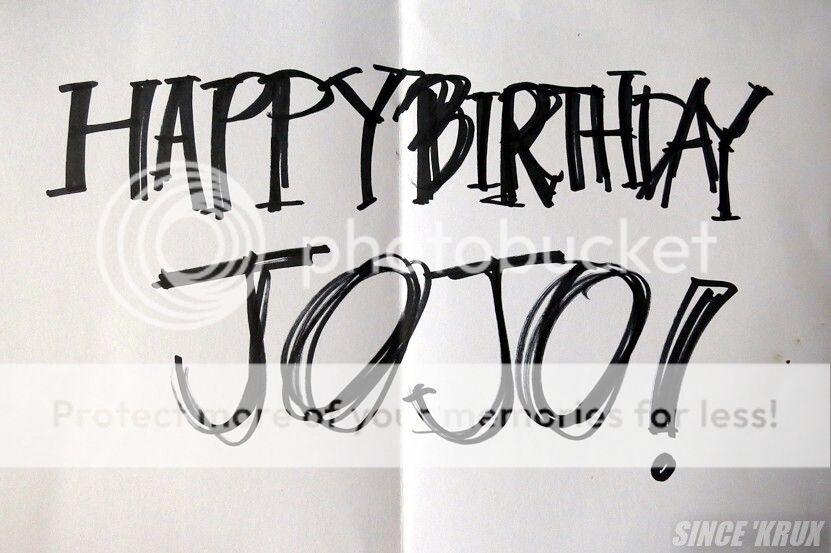 HAPPY BIRTHDAY
photobucket
JOJO!
Protect more of your memories for less!
SINCE 'KRUX